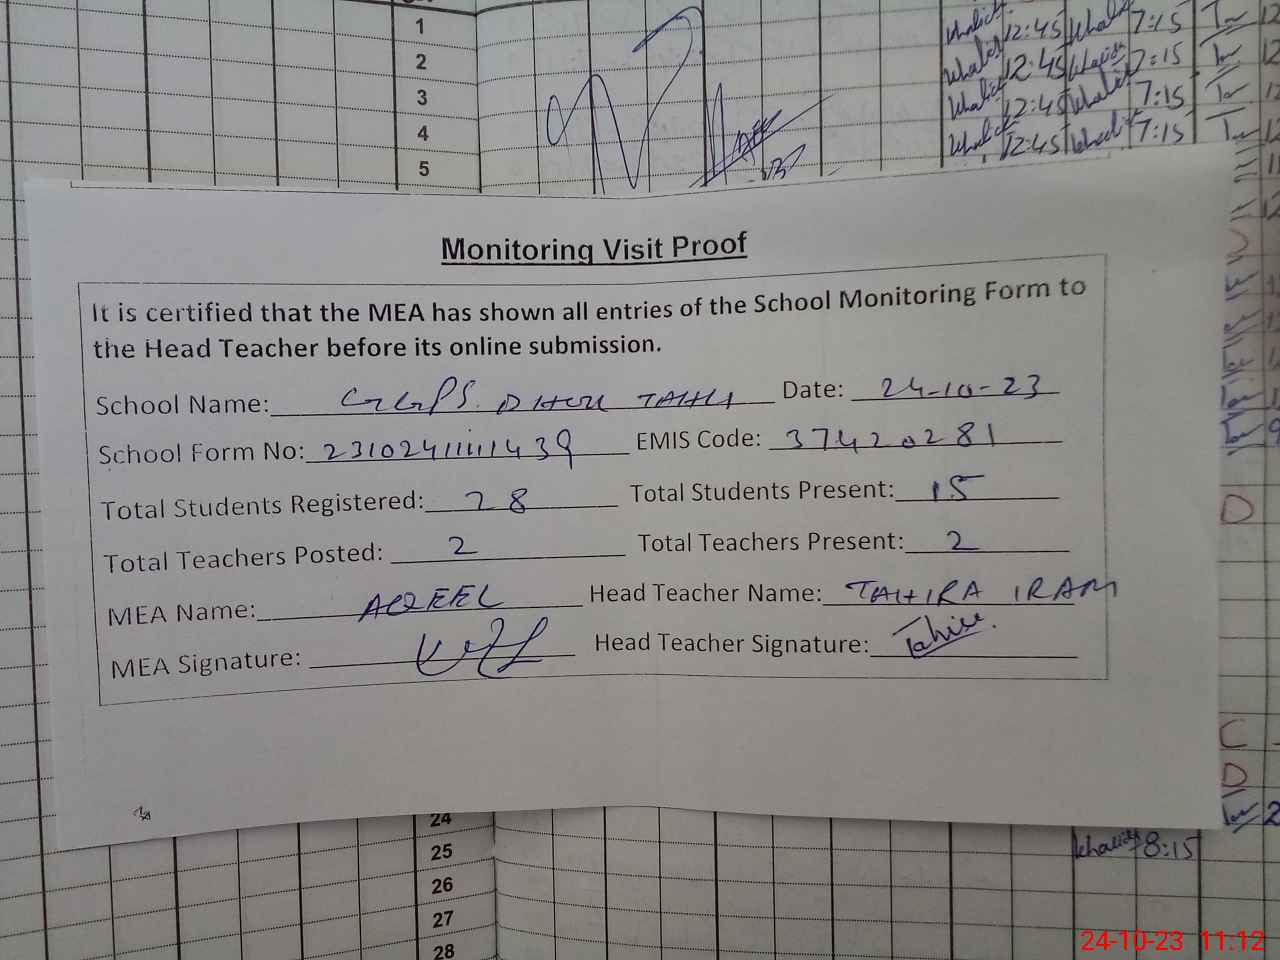 1 Khalid 12:45 Khalid 7:15
2 Khalid 12:45 Khalid 7:15
3 Khalid 12:45 Khalid 7:15
4 Khalid 12:45 Khalid 7:15
5
Monitoring Visit Proof
It is certified that the MEA has shown all entries of the School Monitoring Form to
the Head Teacher before its online submission.
School Name: GGPS. DHOK TAHLI Date: 24-10-23
School Form No: EMIS Code: 37420281
Total Students Registered: 28 Total Students Present: 15
Total Teachers Posted: 2 Total Teachers Present: 2
MEA Name: AQEEL Head Teacher Name: TAHIRA IRAM
MEA Signature: Head Teacher Signature: Tahira.
D
C
D
24
25 Khalid 8:15
26
27
28
24-10-23 11:12